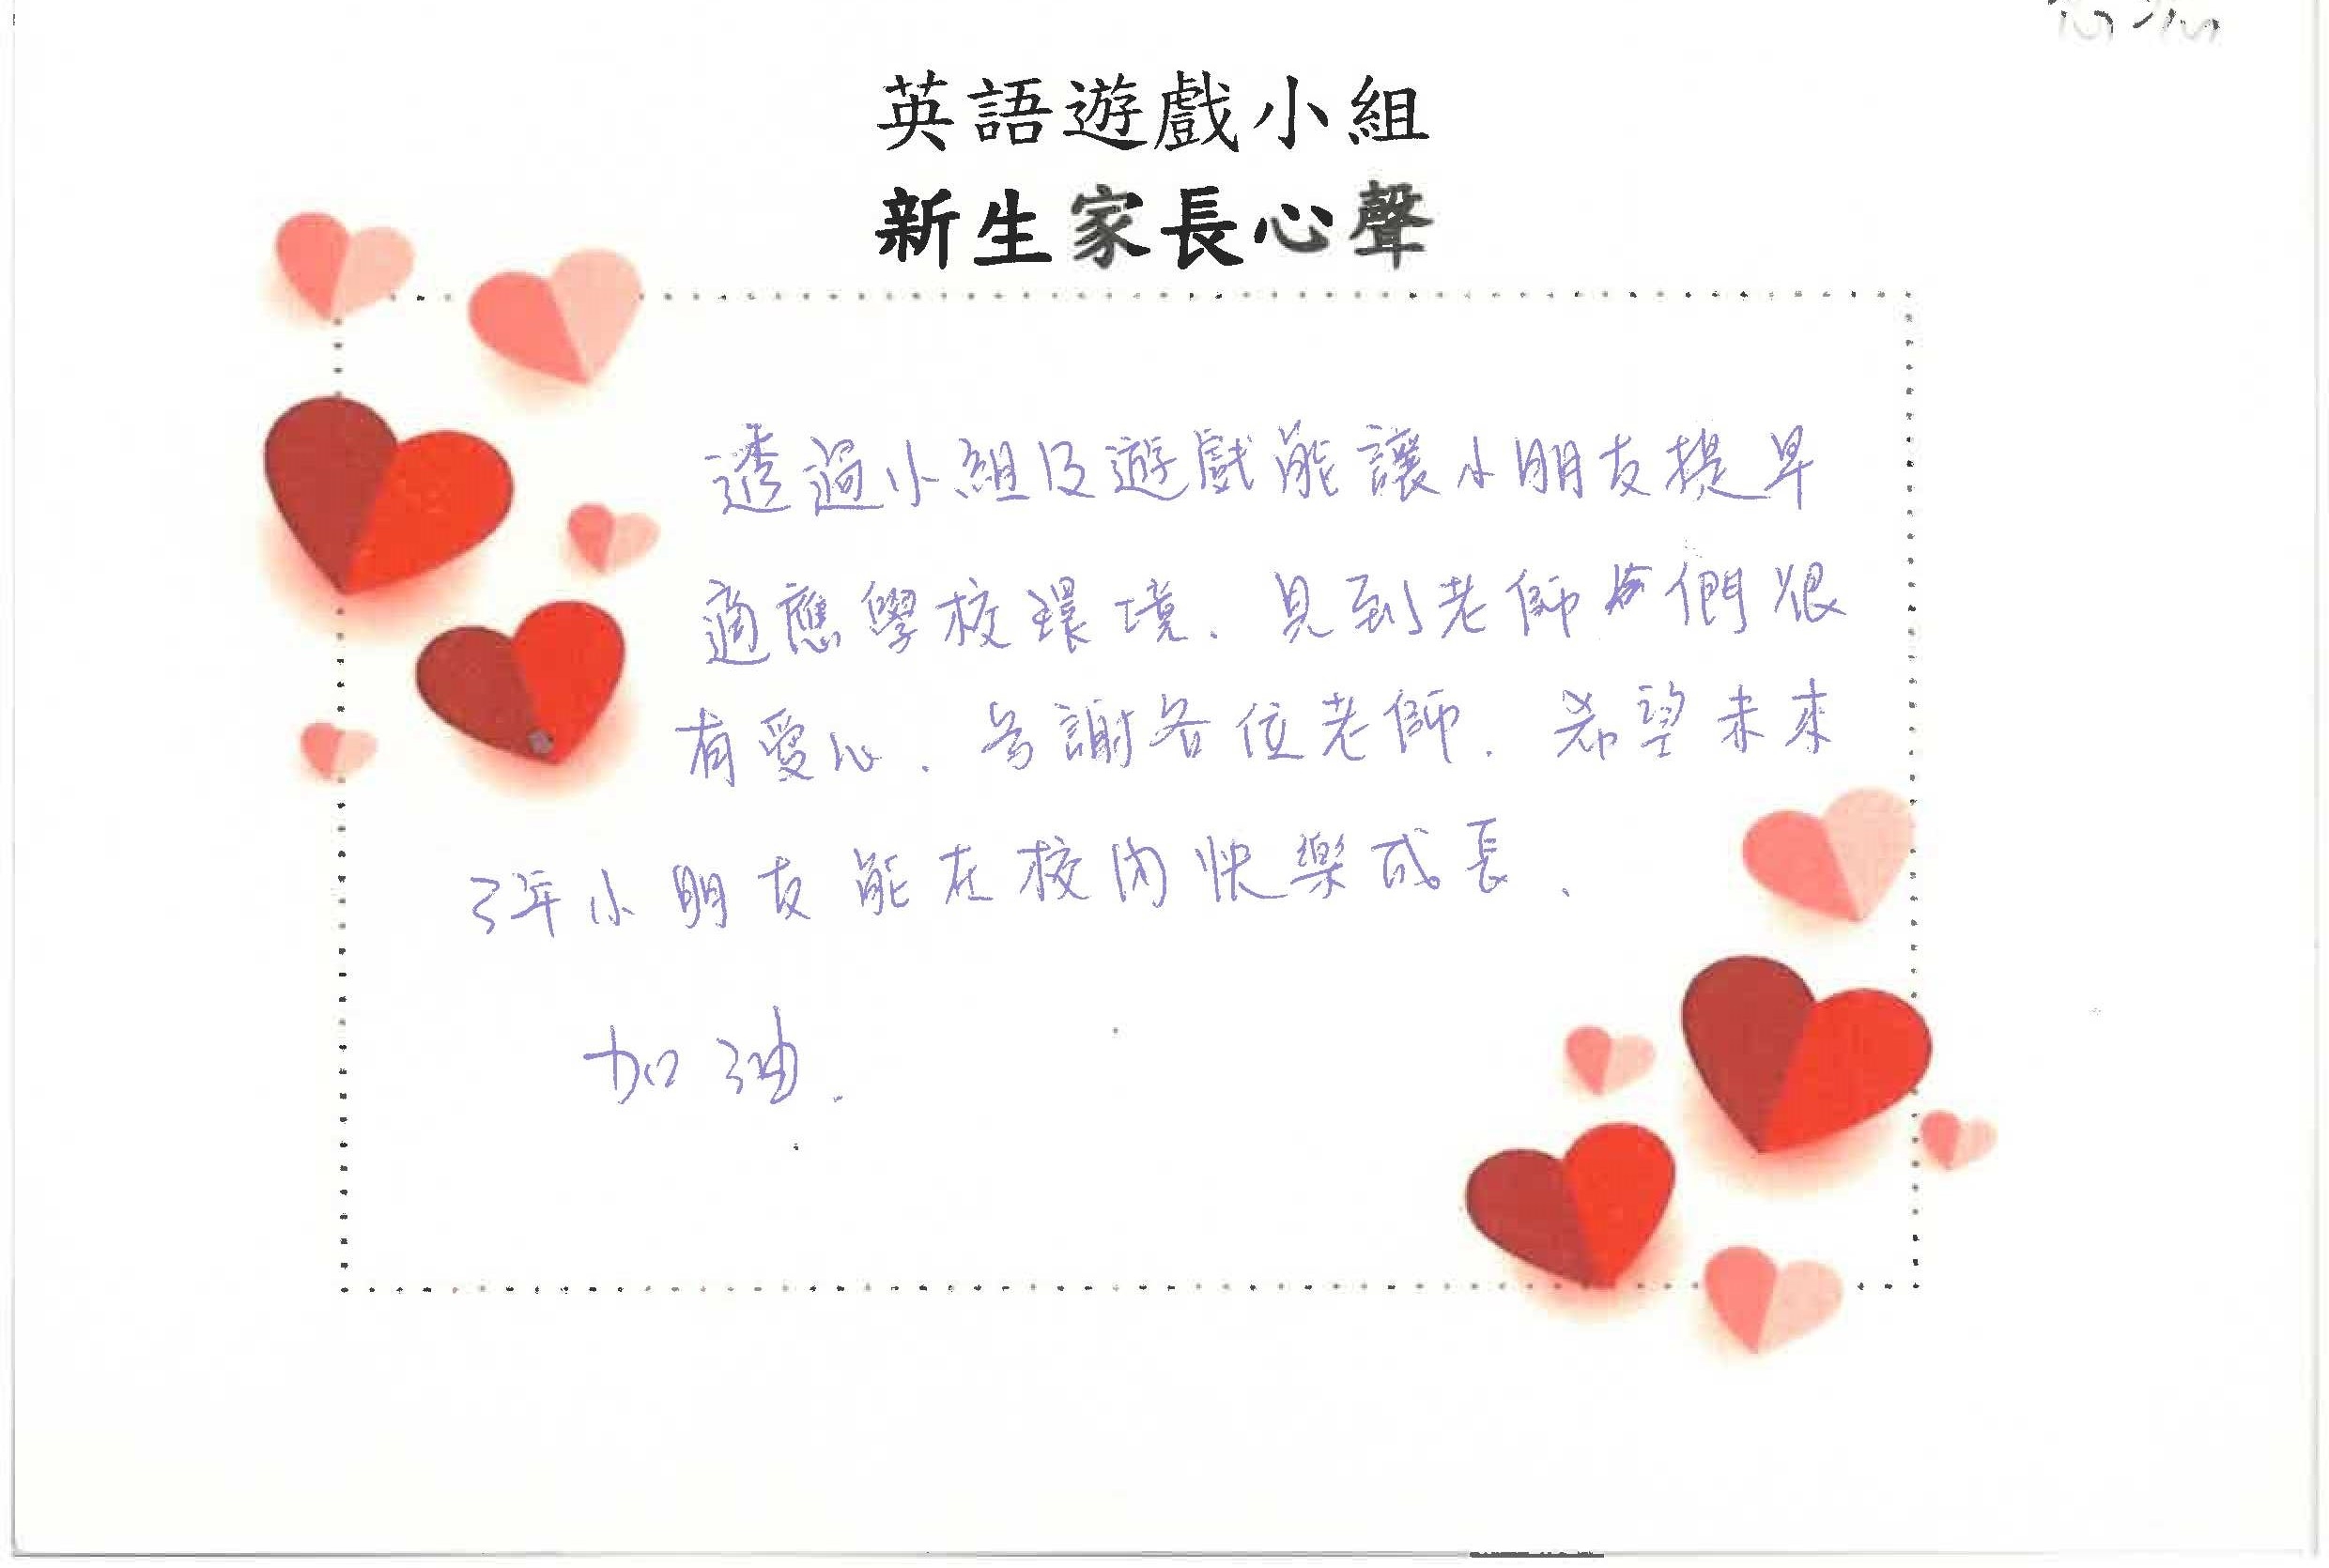 英語遊戲小組
新生家長心聲
透過小組及遊戲能讓小朋友提早
適應學校環境. 見到老師們很
有愛心. 多謝各位老師. 希望未來
3年小朋友能在校內快樂成長.
加油.